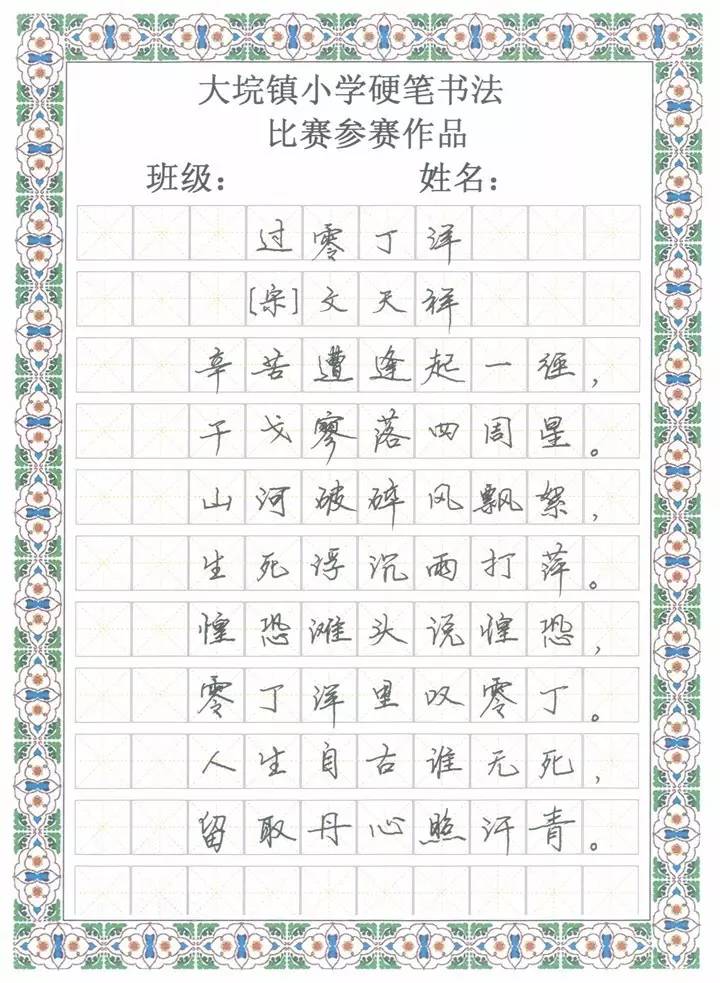 大垸镇小学硬笔书法
比赛参赛作品
班级： 姓名：
过零丁洋
[宋]文天祥
辛苦遭逢起一经，
干戈寥落四周星。
山河破碎风飘絮，
生死浮沉雨打萍。
惶恐滩头说惶恐，
零丁洋里叹零丁。
人生自古谁无死，
留取丹心照汗青。